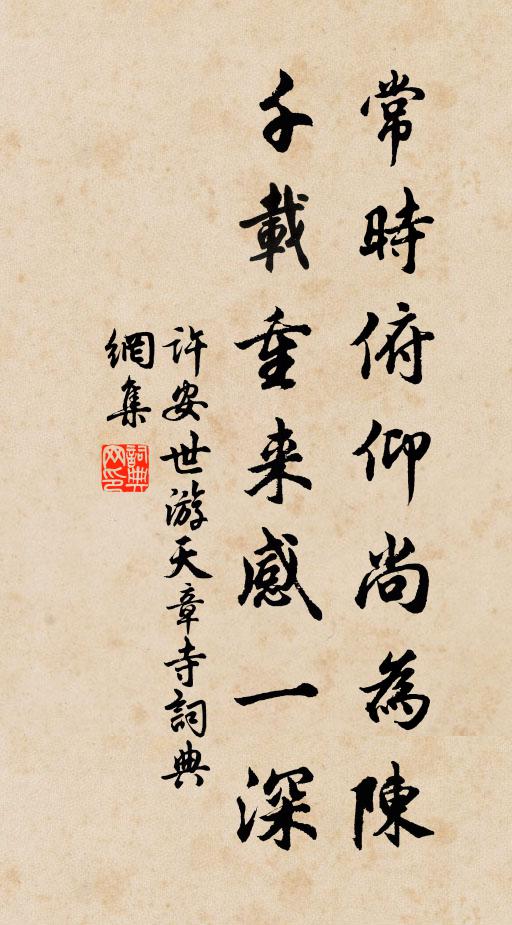 常時俯仰尚為陳
千載重来感一深
許安世游天章寺詞典
網集
詞典
网印